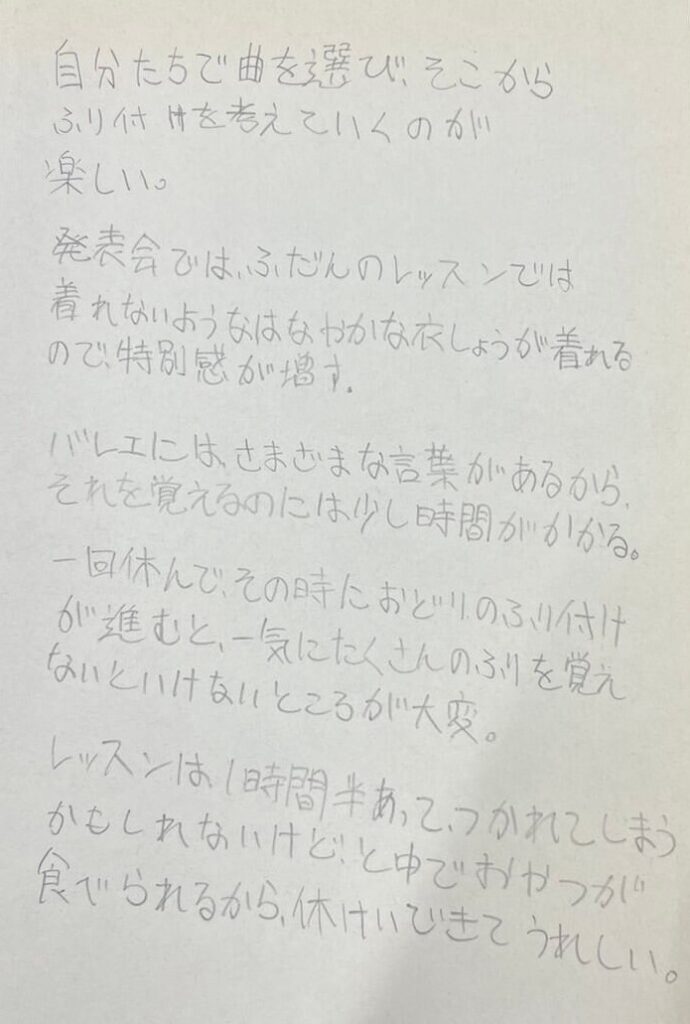 自分たちで曲を選び、そこから
ふり付けを考えていくのが
楽しい。
発表会では、ふだんのレッスンでは
着れないようなはなやかな衣しょうが着れる
ので、特別感が増す。
バレエには、さまざまな言葉があるから、
それを覚えるのには少し時間がかかる。
一回休んで、その時におどりのふり付け
が進むと、一気にたくさんのふりを覚え
ないといけないところが大変。
レッスンは、1時間半あって、つかれてしまう
かもしれないけど、と中でおやつが
食べられるから、休けいできてうれしい。